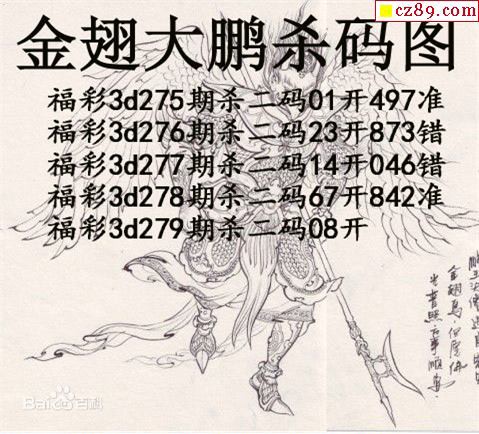 cz89.com
金翅大鹏杀码图
福彩3d275期杀二码01开497准
福彩3d276期杀二码23开873错
福彩3d277期杀二码14开046错
福彩3d278期杀二码67开842准
福彩3d279期杀二码08开
Bai百科